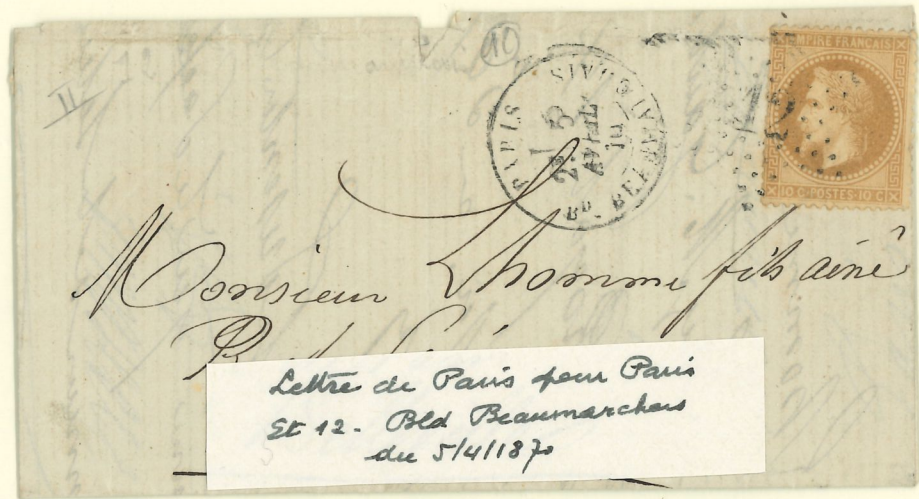 10
II
PARIS
BD. BEAUMARCHAIS
2E
5
AVRIL
70
EMPIRE FRANCAIS
10 C·POSTES·10 C
Monsieur Lhomme fils ainé
Lettre de Paris pour Paris
Et 12 - Bld Beaumarchais
du 5/4/1870